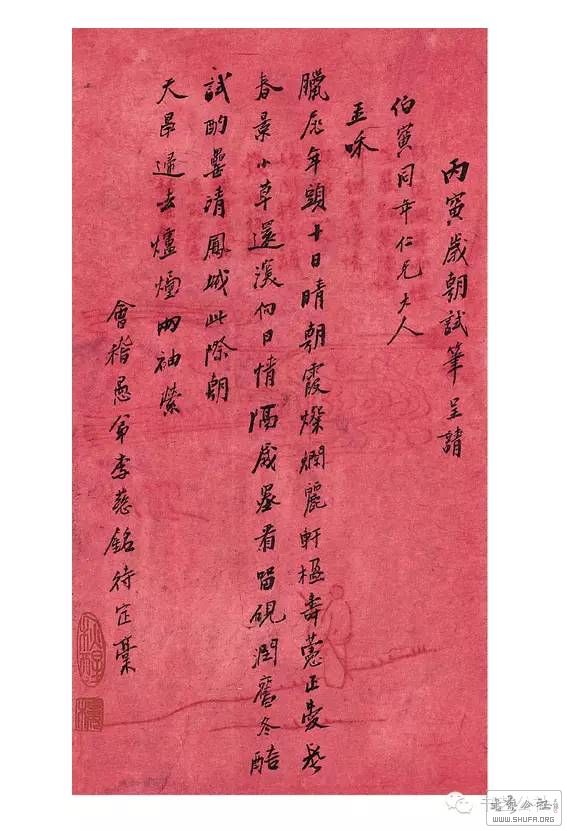 丙寅歲朝試筆呈請
伯寅同年仁兄大人
玉咊
臘尾年頭十日晴朝霞燦爛麗軒楹壽萱正發長
春景小草還深向日情隔歲墨看留硯潤舊冬醅
試酌甖清鳳城此際朝
天早歸去爐煙兩袖縈
會稽愚弟李慈銘待定稾
WWW.SHUFA.ORG